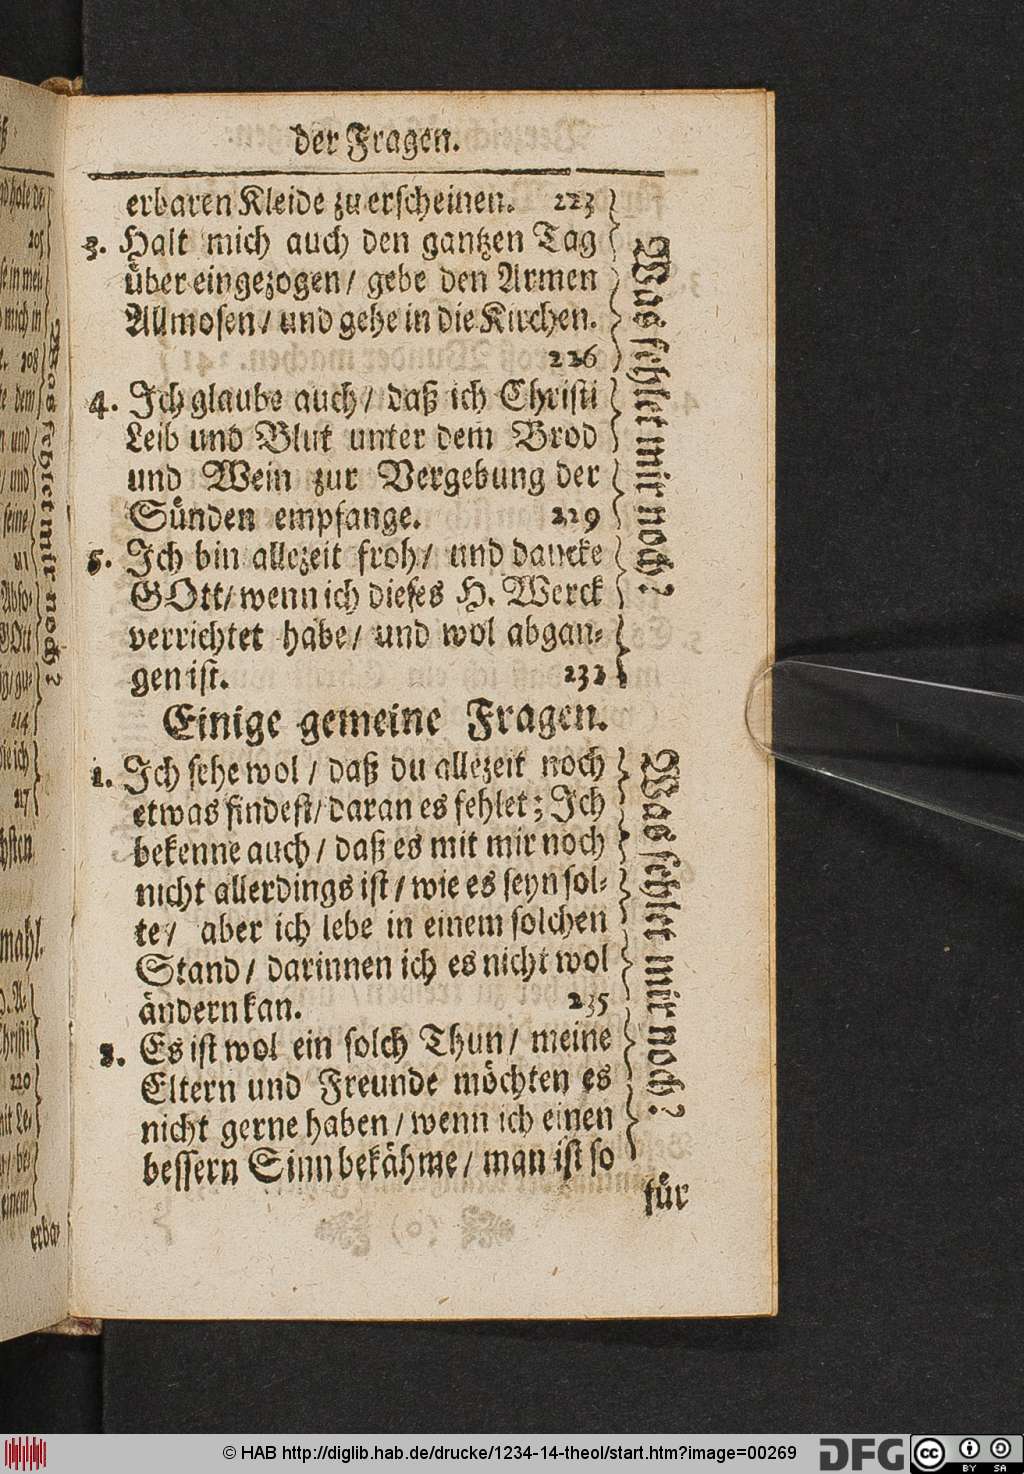 der Fragen.
erbaren Kleide zu erscheinen. 223
3. Halt mich auch den gantzen Tag
über eingezogen / gebe den Armen
Allmosen / und gehe in die Kirchen.
226
4. Ich glaube auch / daß ich Christi
Leib und Blut unter dem Brod
und Wein zur Vergebung der
Sünden empfange. 229
5. Ich bin allezeit froh / und dancke
GOtt / wenn ich dieses H. Werck
verrichtet habe / und wol abgan-
gen ist. 232
Was fehlet mir noch?
Einige gemeine Fragen.
1. Ich sehe wol / daß du allezeit noch
etwas findest / daran es fehlet; Ich
bekenne auch / daß es mit mir noch
nicht allerdings ist / wie es seyn sol-
te / aber ich lebe in einem solchen
Stand / darinnen ich es nicht wol
ändern kan. 235
2. Es ist wol ein solch Thun / meine
Eltern und Freunde möchten es
nicht gerne haben / wenn ich einen
bessern Sinn bekähme / man ist so
Was fehlet mir noch?
für
205
208
Was fehlet mir noch?
214
217
220
erba-
© HAB http://diglib.hab.de/drucke/1234-14-theol/start.htm?image=00269
DFG
cc BY SA